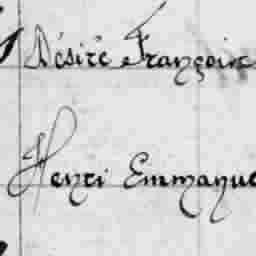 Désiré François
Henri Emmanue